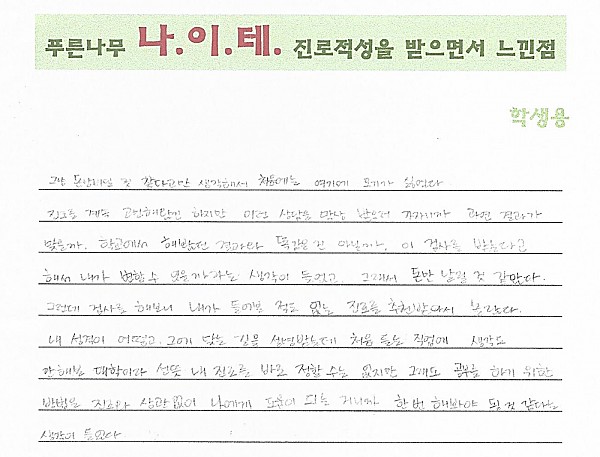 푸른나무 나.이.테. 진로적성을 받으면서 느낀점
학생용
그냥 돈만버릴 것 같다라만 생각해서 처음에는 여기에 오기가 싫었다
진로를 계속 고민해왔긴 하지만 이런 상담을 막상 받으러 가자니까 과연 결과가
맞을까. 학교에서 해봤던 결과와 똑같은건 아닐까. 이 검사를 받는다고
해서 내가 변할 수 있을까라는 생각이 들었고. 그래서 돈만 날릴 것 같았다.
그런데 검사를 해보니 내가 들어본 적도 없는 진로를 추천받아서 놀랐다.
내 성격이 어떻고. 그에 맞는 일을 설명받는데 처음 듣는 직업에 생각도
안해본 대학이라 선뜻 내 진로를 바로 정할 수는 없지만 그래도 공부를 하기 위한
방법은 진로와 상관없이 나에게 도움이 되는 거니까 한번 해봐야 될 것 같다는
생각이 들었다